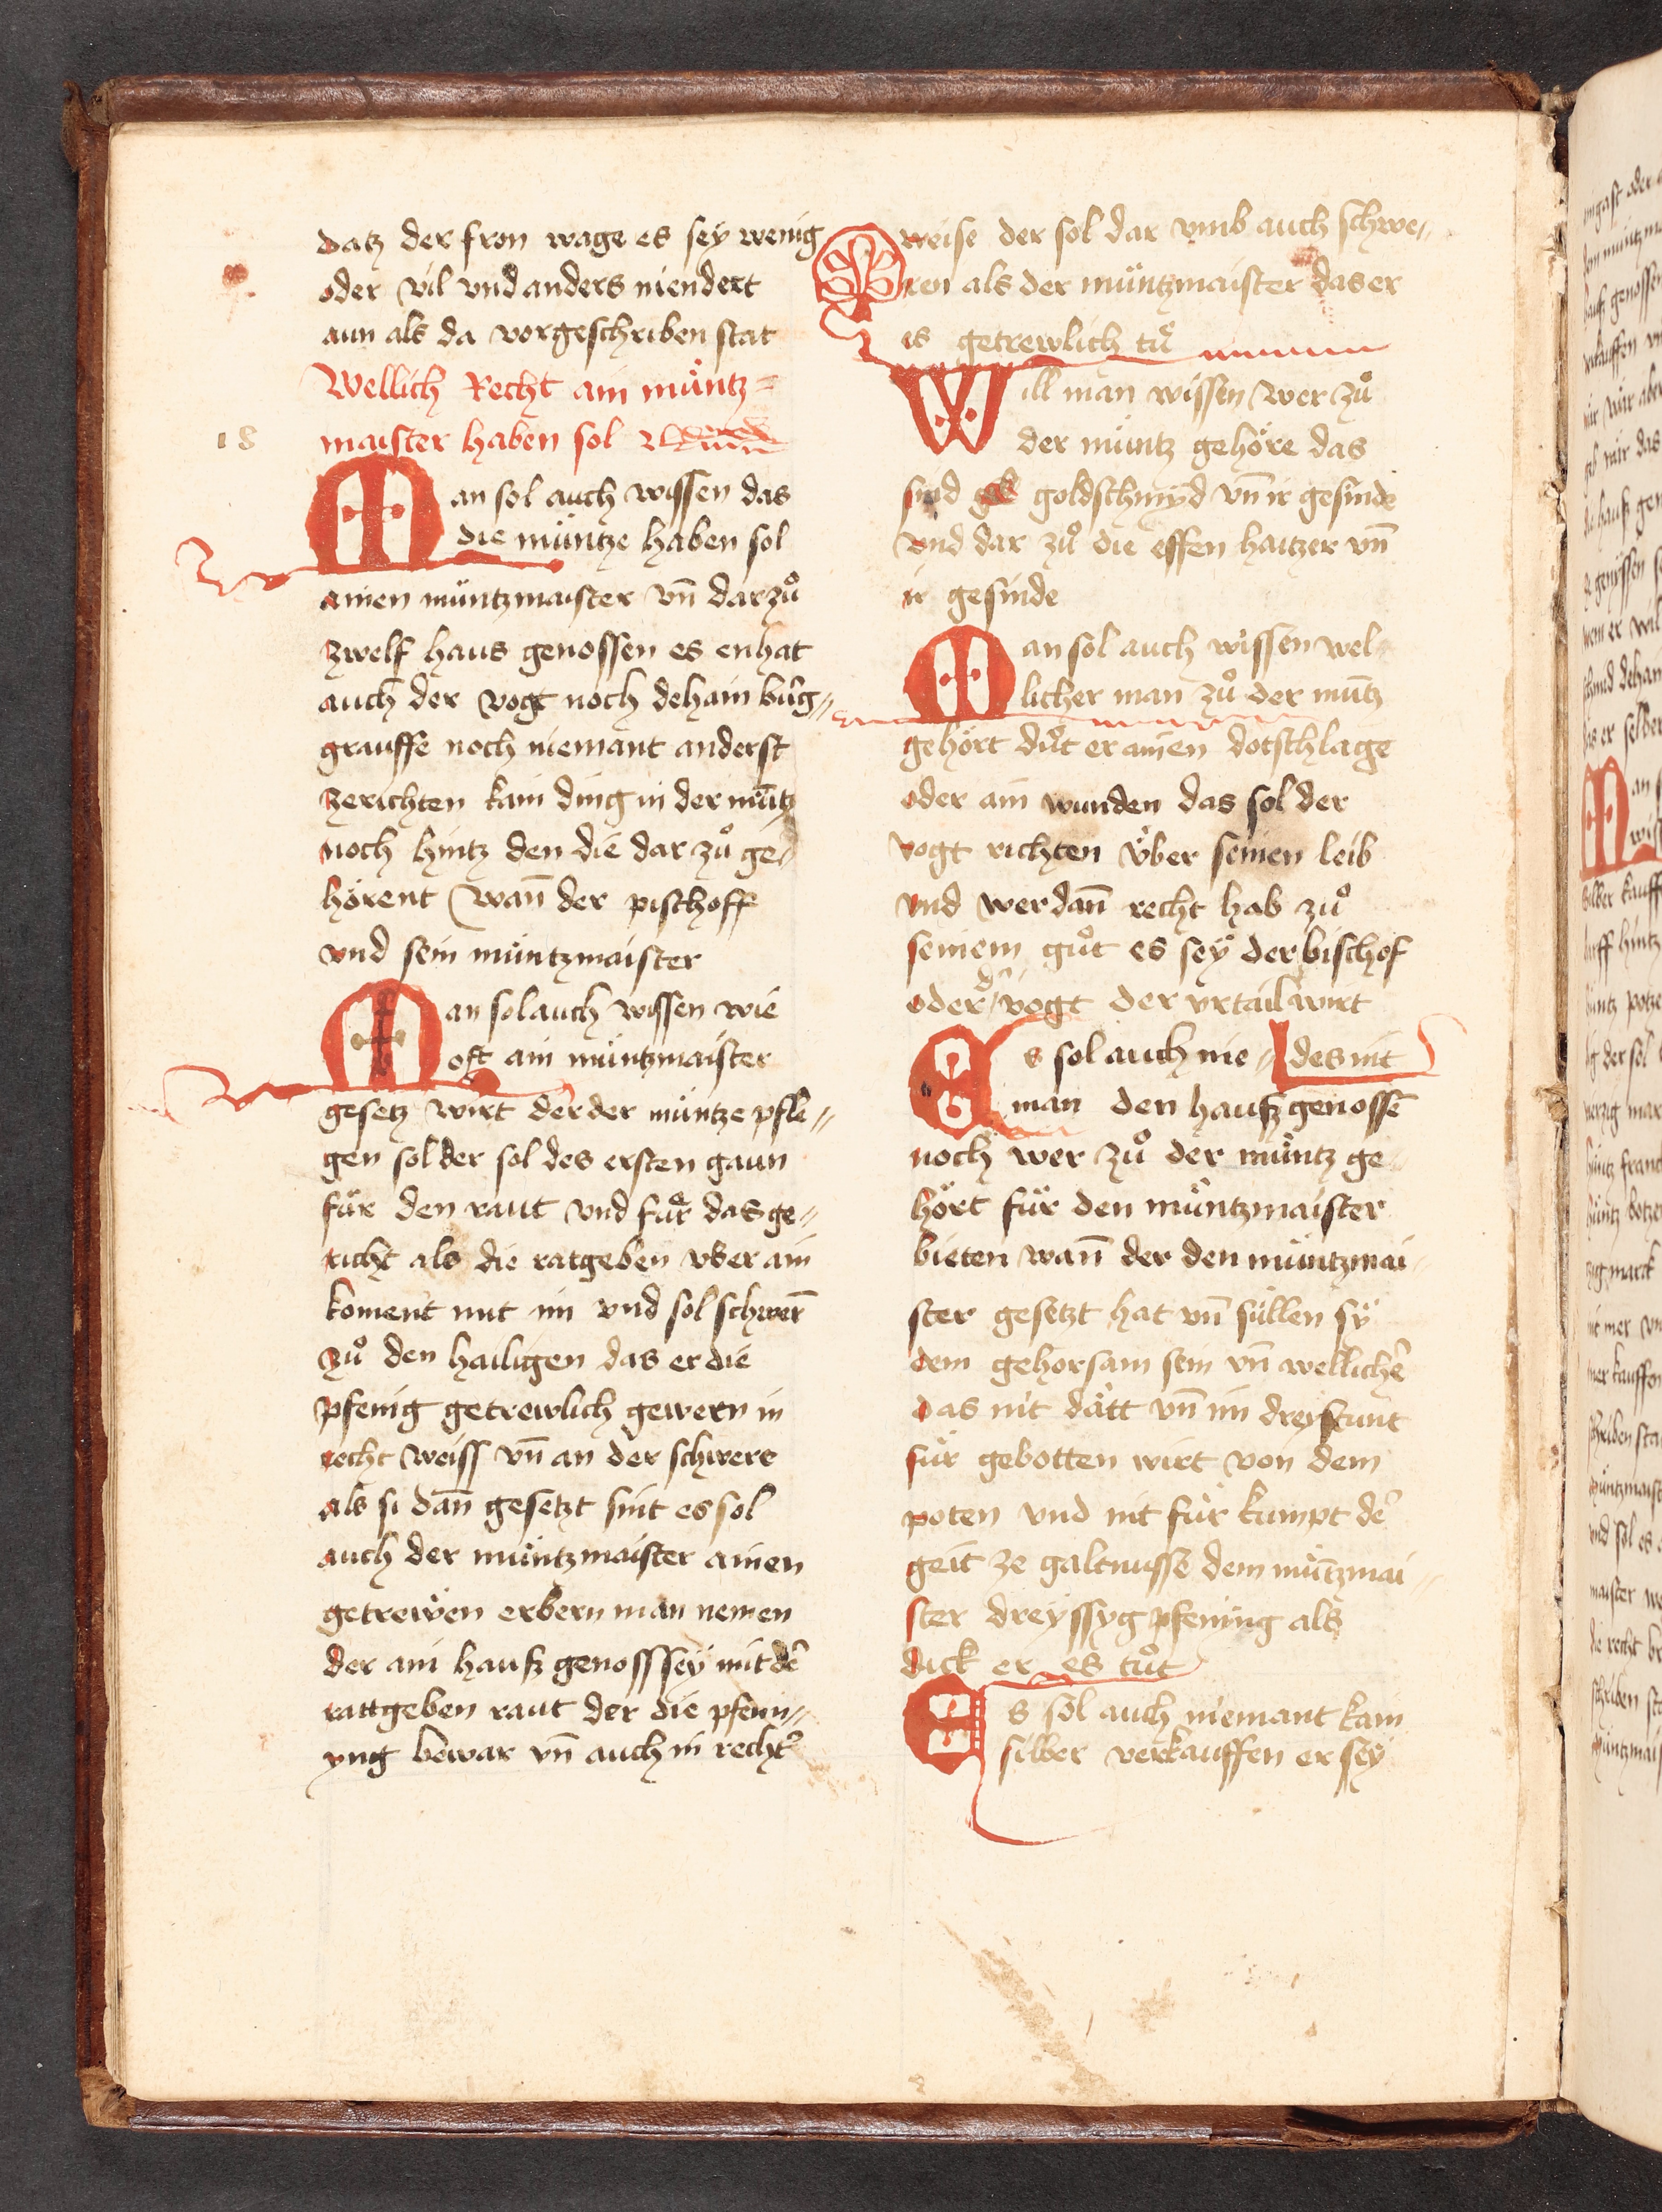 datz der fron wage es sey wenig
oder vil vnd anders niendert
aun als da vorgeschriben stat
Wellich Recht ain müntz=
18 maister haben sol
Man sol auch wissen das
die müntze haben sol
ainen müntzmaister vn̄ dar zuͦ
zwelf haus genossen es enhat
auch der vogt noch dehain burg„
grauffe noch niemant anderst
zerichten kain ding in der mu̅tz
noch hintz den die dar zuͦ ge„
hörent wan̄ der pischoff
vnd sein müntzmaister
Man sol auch wissen wie
oft ain müntzmaister
gesetz wirt der der müntze pfle„
gen sol der sol des ersten gaun
für den raut vnd für das ge„
richt als die ratgeben vber ain
koment mit im vnd sol schwern̄
zuͦ den hailigen das er die
pfenig getrewlich gewern in
recht weiss vn̄ an der schwere
als si dan̄ gesetzt sint es sol
auch der müntzmaister ainen
getrewen erbern man nemen
der ain hausz genosss sey mit de᷑
rattgeben raut der die pfenn„
yng bewar vn̄ auch in recht᷑
weise der sol dar vmb auch schwe„
ren als der müntzmaister das er
is getrewlich tuͤ
Will man wissen wer zuͦ
der müntz gehöre das
sind goldschmyd vn̄ ir gesinde
vnd dar zuͦ die essen haitzer vn̄
ir gesinde
Man sol auch wissen wel„
licher man zuͦ der mu̅tz
gehört duͤt er ainen dotschlage
oder ain wunden das sol der
vogt richten v̈ber seinen leib
vnd wer dan̄ recht hab zuͦ
seinem guͦt es sey der bischof
oder d᷑ vogt der vrtail wirt
Es sol auch nie„ des nit
man den hausz genosse̅
noch wer zuͦ der müntz ge„
hört für den müntzmaister
bieten wan̄ der den müntzmai„
ster gesetzt hat vn̄ süllen sy
dem gehorsam sein vn̄ wellich᷑
das nit dätt vn̄ im dreystunt
für gebotten wirt von dem
poten vnd nit für kumpt de᷑
geit ze galtnusse dem mü̅tzmai„
ster dreyssyg pfening als
dick er es tuͦt
Es sol auch niemant kain
silber verkauffen er sey